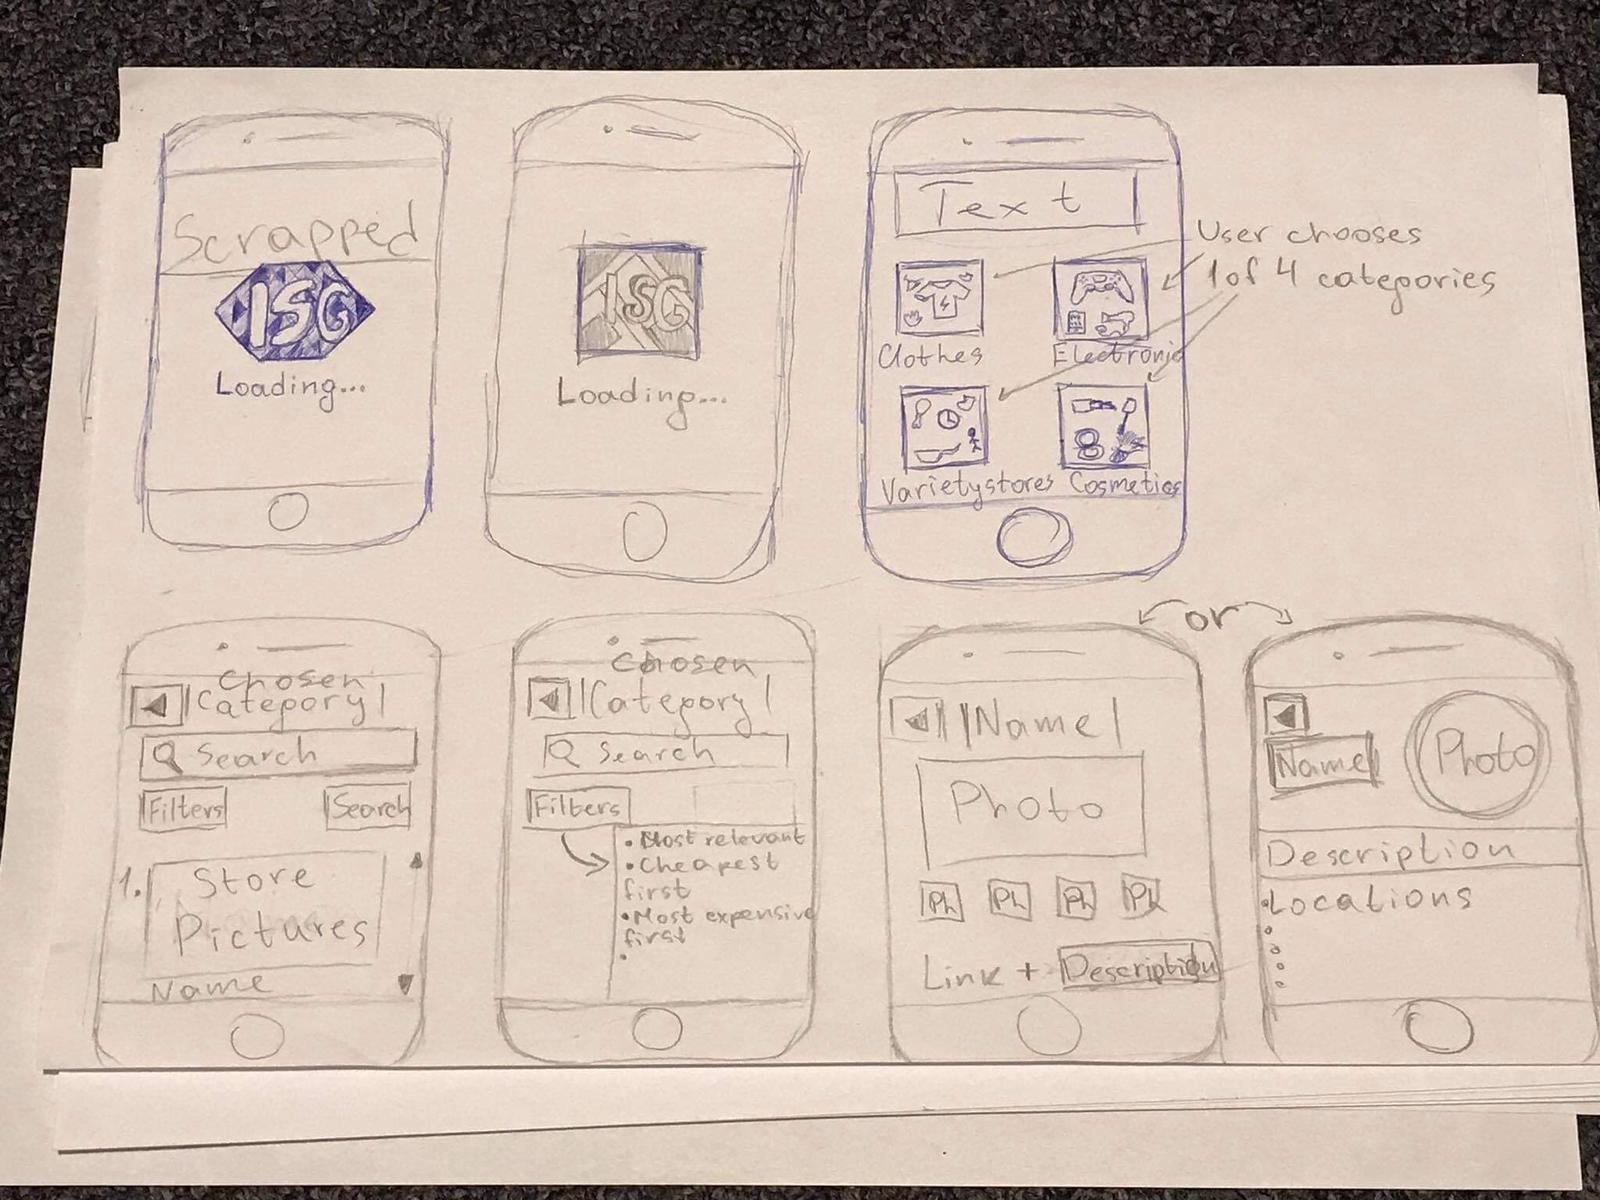 Scrapped
ISG
Loading...
ISG
Loading...
Text
Clothes
Electronic
Varietystores
Cosmetics
User chooses
1 of 4 categories
Chosen
Category
Search
Filters
Search
1. Store
Pictures
Name
Chosen
Category
Search
Filters
• Most relevant
• Cheapest
first
• Most expensive
first
•
or
Name
Photo
Ph Ph Ph Ph
Link + Description
Name
Photo
Description
• Locations